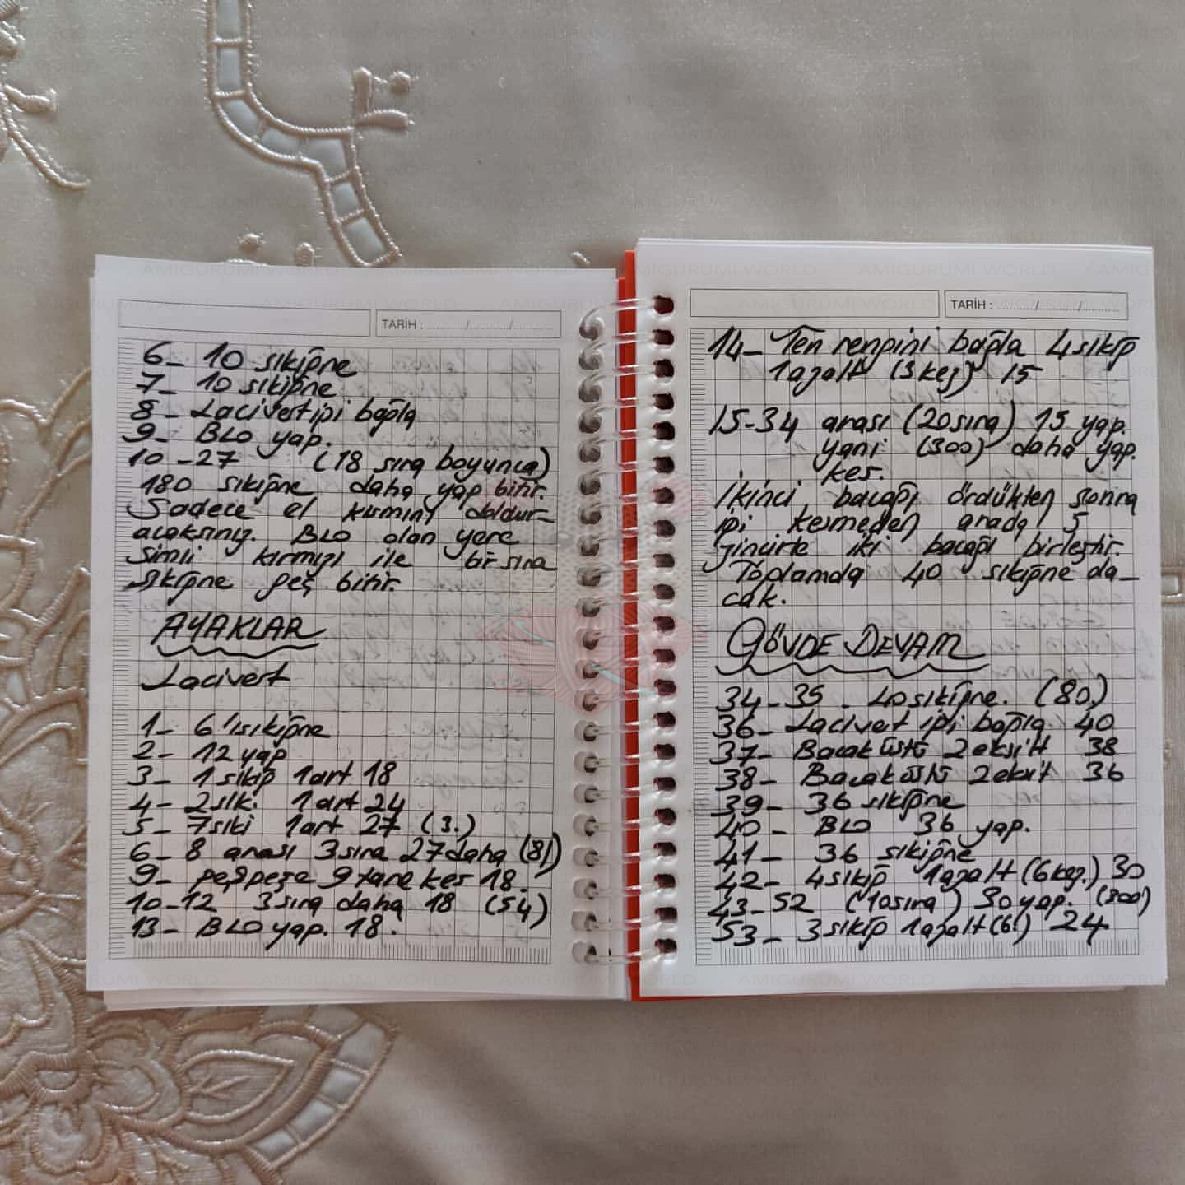 TARİH : ......../......../........
6- 10 sıkiğne
7- 10 sıkiğne
8- Lacivert ipi bağla
9- BLO yap.
10-27 (18 sıra boyunca)
180 sıkiğne daha yap bitir.
Sadece el kısmını doldur-
acaksınız. BLO olan yere
Simli kırmızı ile bir sıra
sıkiğne geç bitir.
AYAKLAR
Lacivert
1- 6'sıkiğne
2- 12 yap
3- 1 sıkiğ 1art 18
4- 2sık. 1art 24
5- 7siki 1art 27 (3.)
6- 8 arası 3sıra 27daha (81)
9- peşpeşe 9 tane kes 18.
10-12 3sıra daha 18 (54)
13- BLO yap. 18.
TARİH : ......../......../........
14- Ten rengini bağla 4sıkiğ
1azalt (3kez) 15
15-34 arası (20sıra) 15 yap.
yani (300) daha yap.
kes.
İkinci bacağı ördükten sonra
ipi kesmeden arada 5
zincirle iki bacağı birleştir.
Toplamda 40 sıkiğne da-
cak.
GÖVDE DEVAM
34-35. 40sıkiğne. (80)
36- Lacivert ipi bağla 40
37- Bacak üstü 2eksilt 38
38- Bacak üstü 2eksilt 36
39- 36 sıkiğne
40- BLO 36 yap.
41- 36 sıkiğne
42- 4sıkiğ 1azalt (6kez.) 30
43-52 (10sıra) 30 yap. (300)
53- 3sıkiğ 1azalt (6) 24
AMIGURUMI WORLD